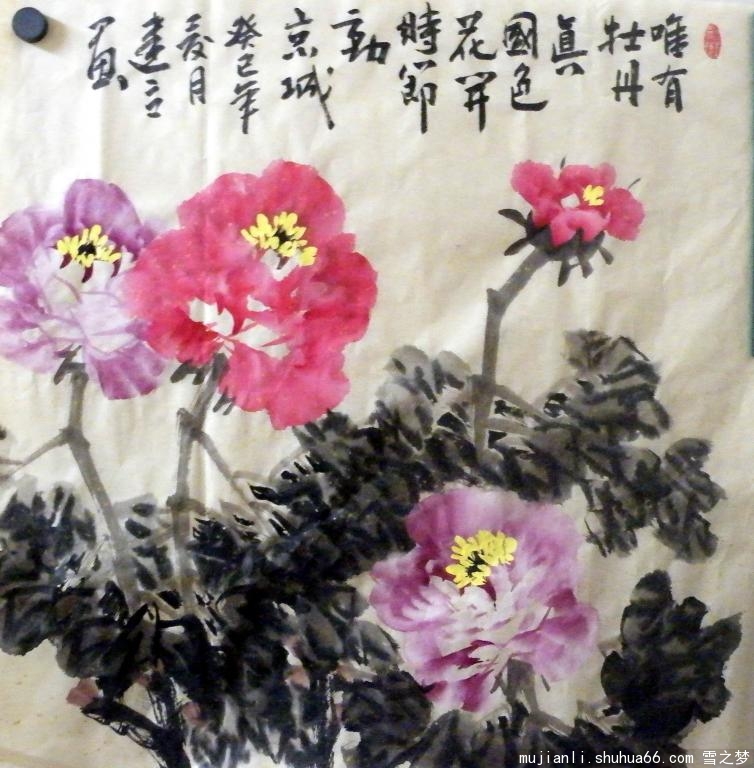 唯有
牡丹
真
國色
花開
時節
動
京城
癸巳年
夏月
建立
画
mujianli.shuhua66.com 雪之梦